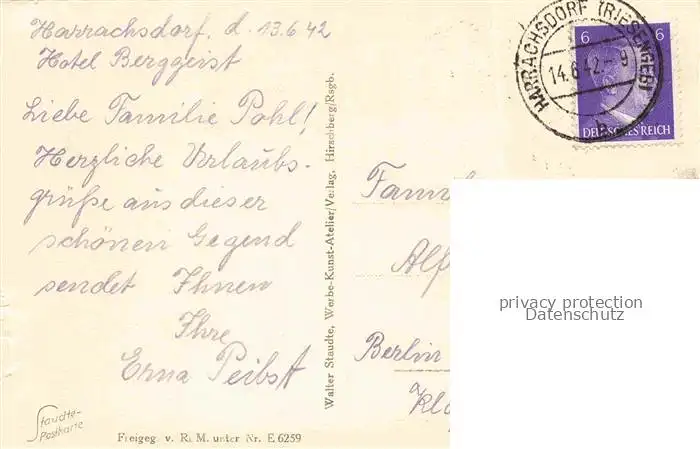 Harrachsdorf, d. 13.6.42
Hotel Berggeist
Liebe Familie Pohl!
Herzliche Urlaubs-
grüße aus dieser
schönen Gegend
sendet Ihnen
Ihre
Erna Peibst
Staudte-
Postkarte
Freigeg. v. R. M. unter Nr. E 6259
Walter Staudte, Werbe-Kunst-Atelier/Verlag, Hirschberg/Rsgb.
HARRACHSDORF (RIESENGEB)
14.6.42.-9
6 6
DEUTSCHES REICH
Famil
Alf
Berlin
privacy protection
Datenschutz